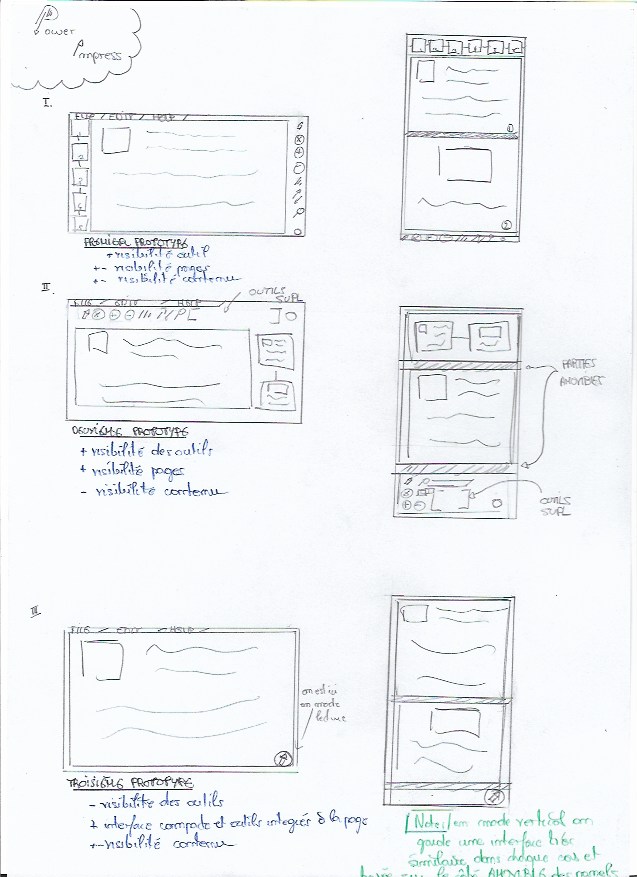 Power
Impress
I.
FILE / EDIT / HELP /
PREMIER PROTOTYPE
+ visibilité outil
+- visibilité pages
+- visibilité contenu
II.
FILE / EDIT / HELP
OUTILS
SUPL
DEUXIÈME PROTOTYPE
+ visibilité des outils
+ visibilité pages
- visibilité contenu
PARTIES
AMOVIBLES
OUTILS
SUPL
III.
FILE / EDIT / HELP /
on est ici
en mode
lecture
TROISIÈME PROTOTYPE
- visibilité des outils
+ interface compacte et outils integrés à la page
+- visibilité contenu
Note: / en mode vertical on
garde une interface très
similaire dans chaque cas et
basée sur le côté AMOVIBLE des panels